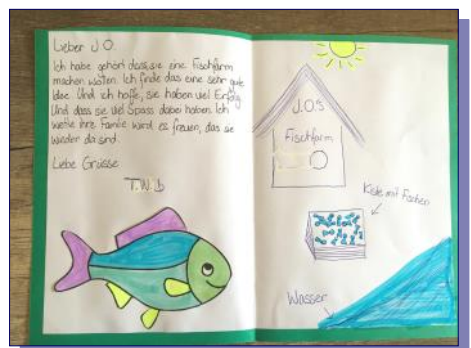 Lieber J.O.
Ich habe gehört dass sie eine Fischfarm
machen wolten. Ich finde das eine sehr gute
Idee. Und ich hoffe, sie haben viel Erfolg
Und dass sie viel Spass dabei haben. Ich
weiss ihre Familie wird es freuen, das sie
wieder da sind.
Liebe Grüsse
T.W.b
J.O.s
Fischfarm
Kiste mit Fischen
Wasser